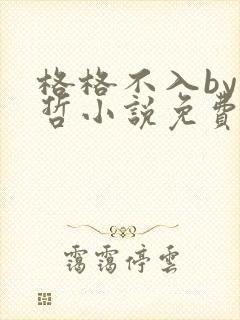 格格不入by
哲小說免費
靄靄停雲